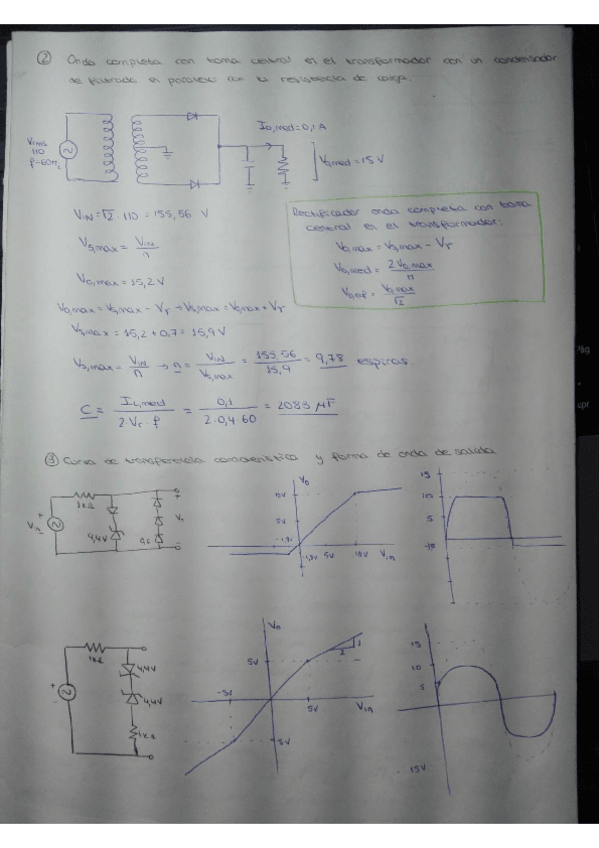 ② Onda completa con toma central en el transformador con un condensador
de filtrado en paralelo con la resistencia de carga.
Io,med=0,1A
Vrms
110
f=60Hz
Vo,med=15V
VIN=√2·110=155,56 V
Vs,max=VIN/n
Vo,max=15,2V
Vo,max=Vs,max-Vr→Vs,max=Vo,max+Vr
Vs,max=15,2+0,7=15,9V
Vs,max=VIN/n→n=VIN/Vs,max=155,56/15,9=9,78 espiras.
C=IL,med/2·Vr·f=0,1/2·0,4·60=2083 μF
Rectificador onda completa con toma
central en el transformador:
Vo,max=Vs,max-Vr
Vo,med=2Vo,max/π
Vo,ef=Vo,max/√2
③ Curva de transferencia característica y forma de onda de salida
1kΩ
Vin
+
-
4,4V
+
-
Vo
10V
5V
-1,3V
5V
Vin
15
10
5
1kΩ
+
4,4V
4,4V
1kΩ
Vo
5V
-5V
5V
Vin
-5V
1
2
15
10
5
-15V